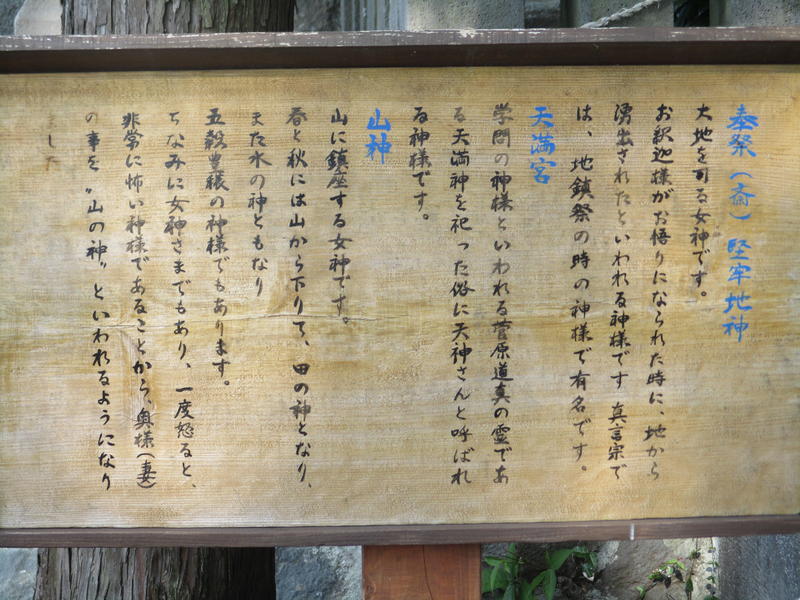 奉祭(斎) 堅牢地神
大地を司る女神です。
お釈迦様がお悟りになられた時に、地から
湧出されたといわれる神様です 真言宗で
は、地鎮祭の時の神様で有名です。
天満宮
学問の神様といわれる菅原道真の霊であ
る天満神を祀った俗に天神さんと呼ばれ
る神様です。
山神
山に鎮座する女神です。
春と秋には山から下りて、田の神となり、
また水の神ともなり
五穀豊穣の神様でもあります。
ちなみに女神さまでもあり、一度怒ると、
非常に怖い神様であることから、奥様(妻)
の事を〝山の神〟といわれるようになり
ました